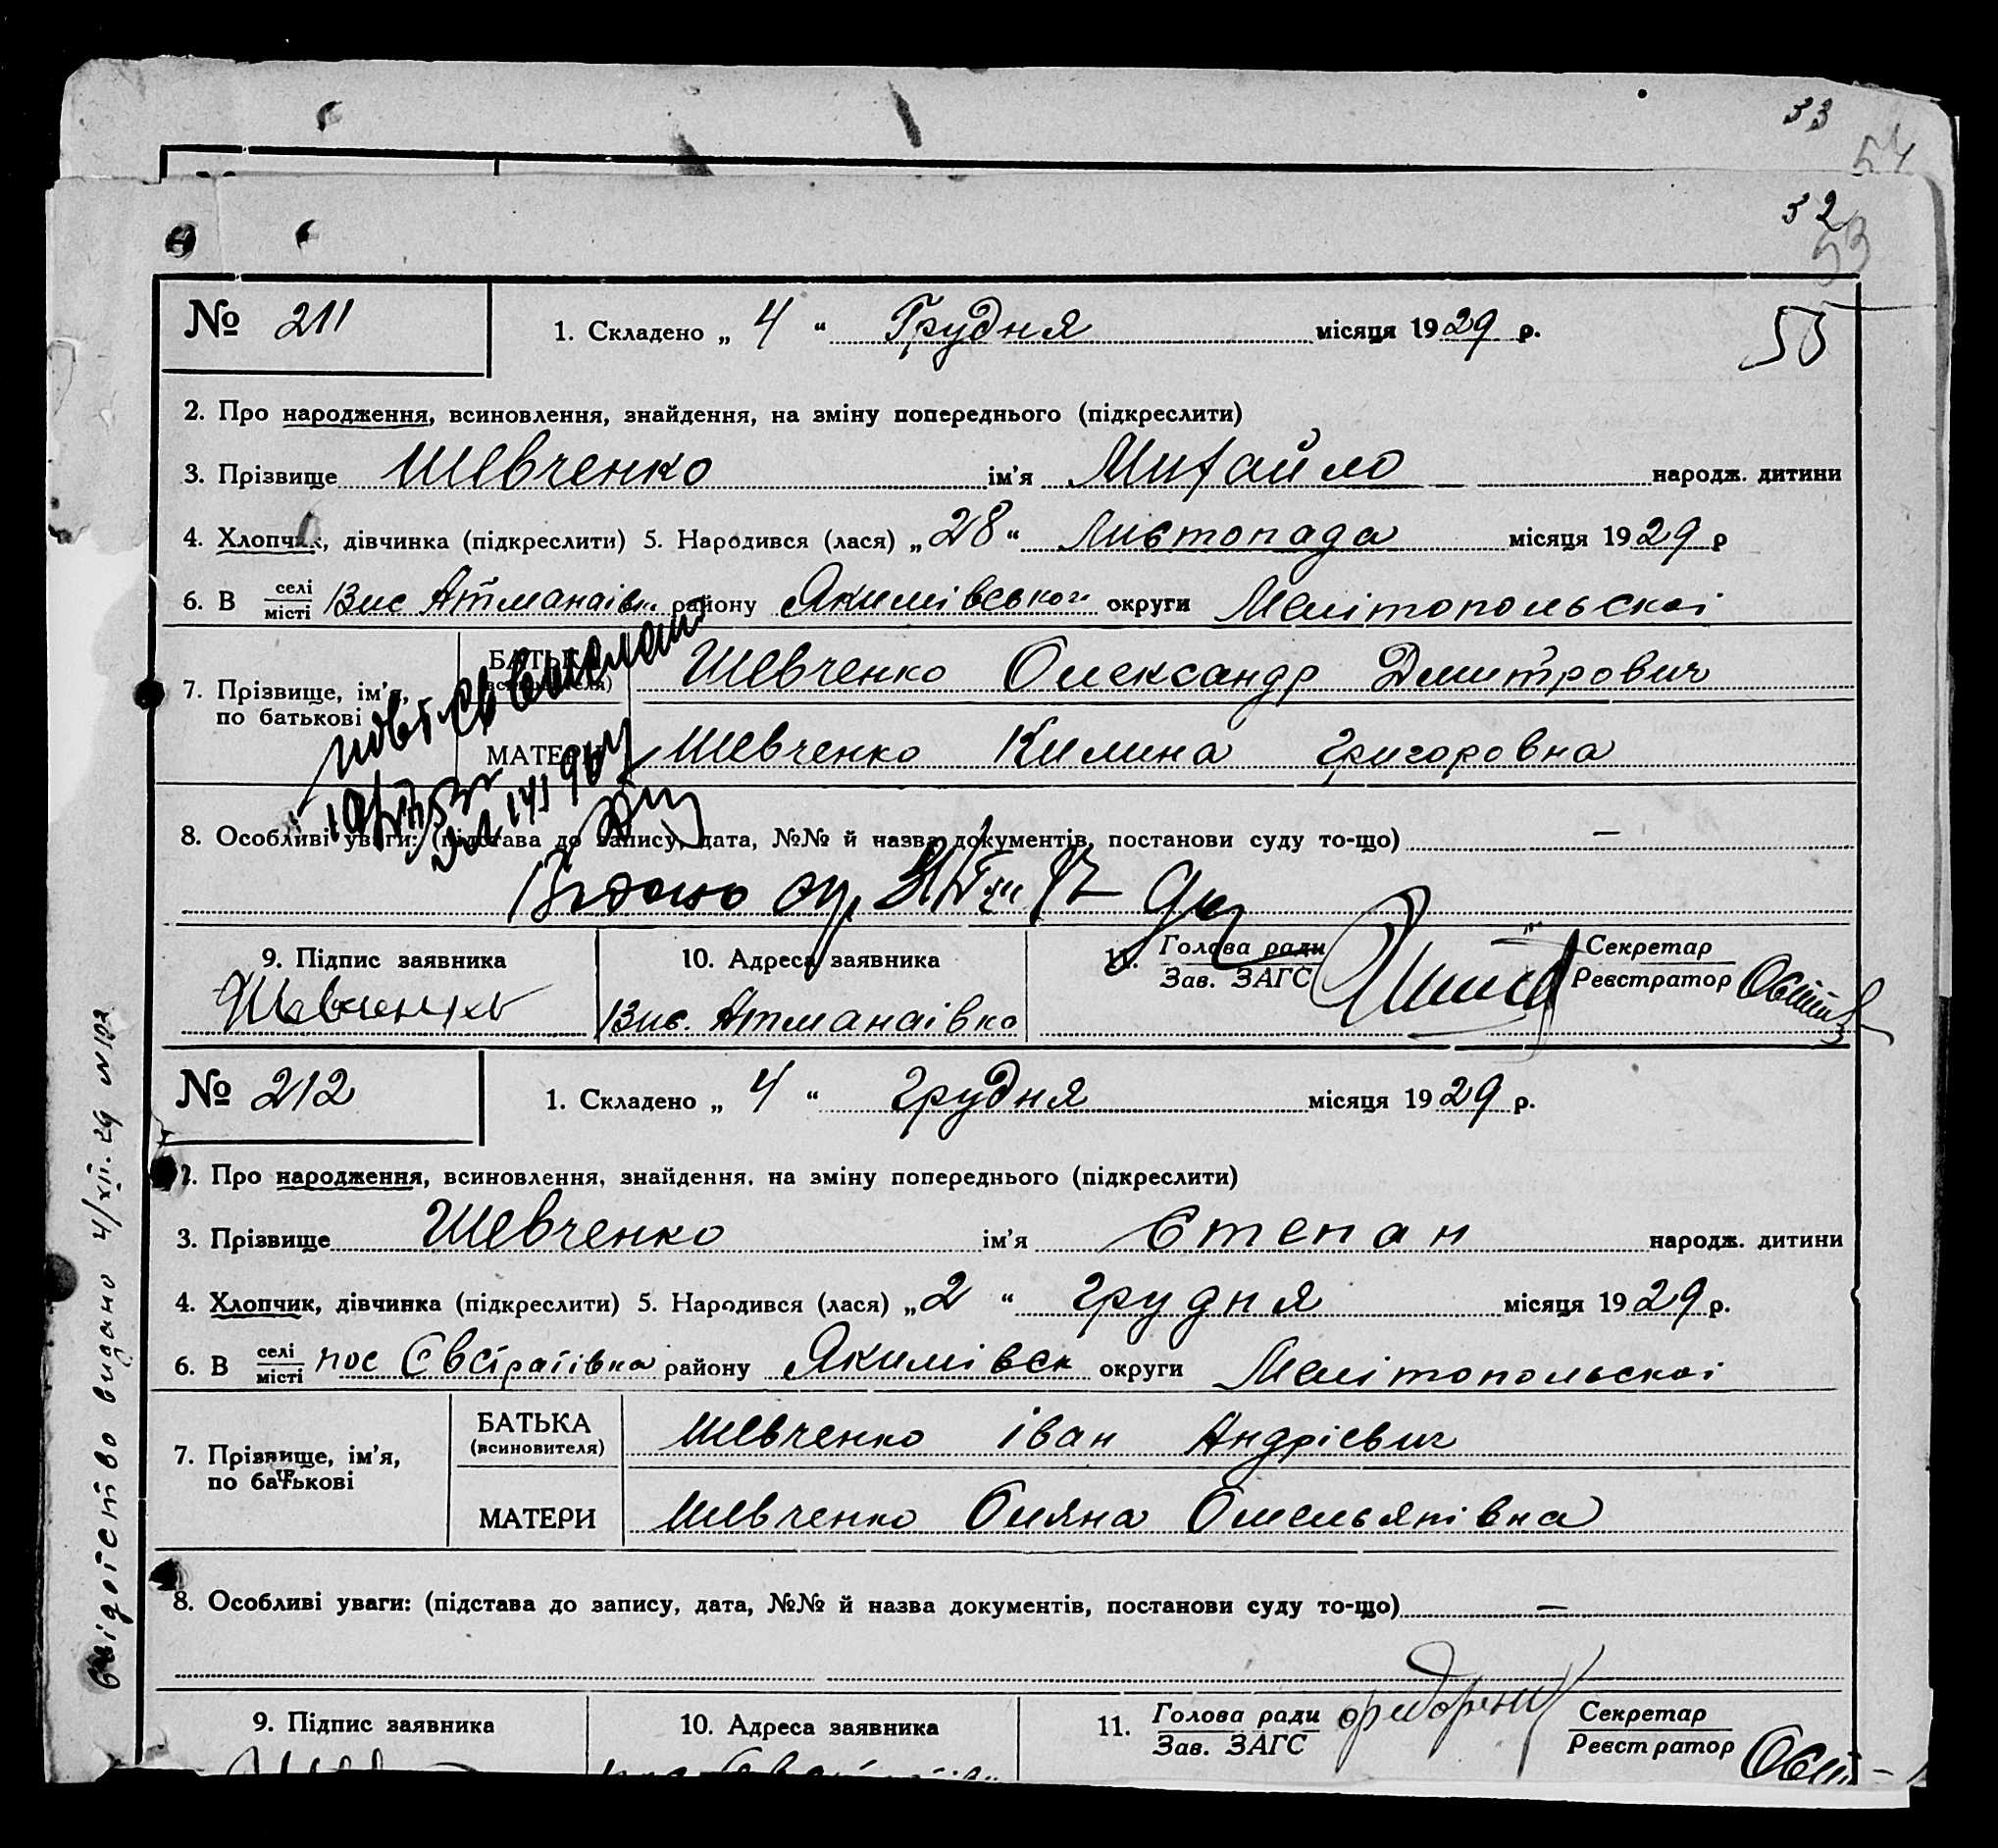 33
54
32
53
№ 211
1. Складено „ 4 “ Грудня місяця 1929 р.
55
2. Про народження, всиновлення, знайдення, на зміну попереднього (підкреслити)
3. Прізвище Шевченко ім’я Михайло народж. дитини
4. Хлопчик, дівчинка (підкреслити) 5. Народився (лася) „28“ Листопада місяця 1929 р
6. В селі місті Вис Атманаівк. району Якимівського округи Мелітопольскоі
7. Прізвище, ім’я, по батькові
БАТЬКА (всиновителя) Шевченко Олександр Дмитрович
МАТЕРИ Шевченко Килина Григоровна
8. Особливі уваги: (підстава до запису, дата, №№ й назва документів, постанови суду то-що) —
9. Підпис заявника
10. Адреса заявника
11. Голова ради Зав. ЗАГС
Секретар Реєстратор
Шевченко
Вис. Атманаівка
№ 212
1. Складено „ 4 “ грудня місяця 1929 р.
2. Про народження, всиновлення, знайдення, на зміну попереднього (підкреслити)
3. Прізвище Шевченко ім’я Степан народж. дитини
4. Хлопчик, дівчинка (підкреслити) 5. Народився (лася) „2 “ грудня місяця 1929 р.
6. В селі місті пос Євстратівка району Якимівск округи Мелітопольскоі
7. Прізвище, ім’я, по батькові
БАТЬКА (всиновителя) Шевченко Іван Андрієвич
МАТЕРИ Шевченко Оляна Омельянівна
8. Особливі уваги: (підстава до запису, дата, №№ й назва документів, постанови суду то-що) —
9. Підпис заявника
10. Адреса заявника
11. Голова ради Зав. ЗАГС
Секретар Реєстратор
видано 4/XII. 29 N